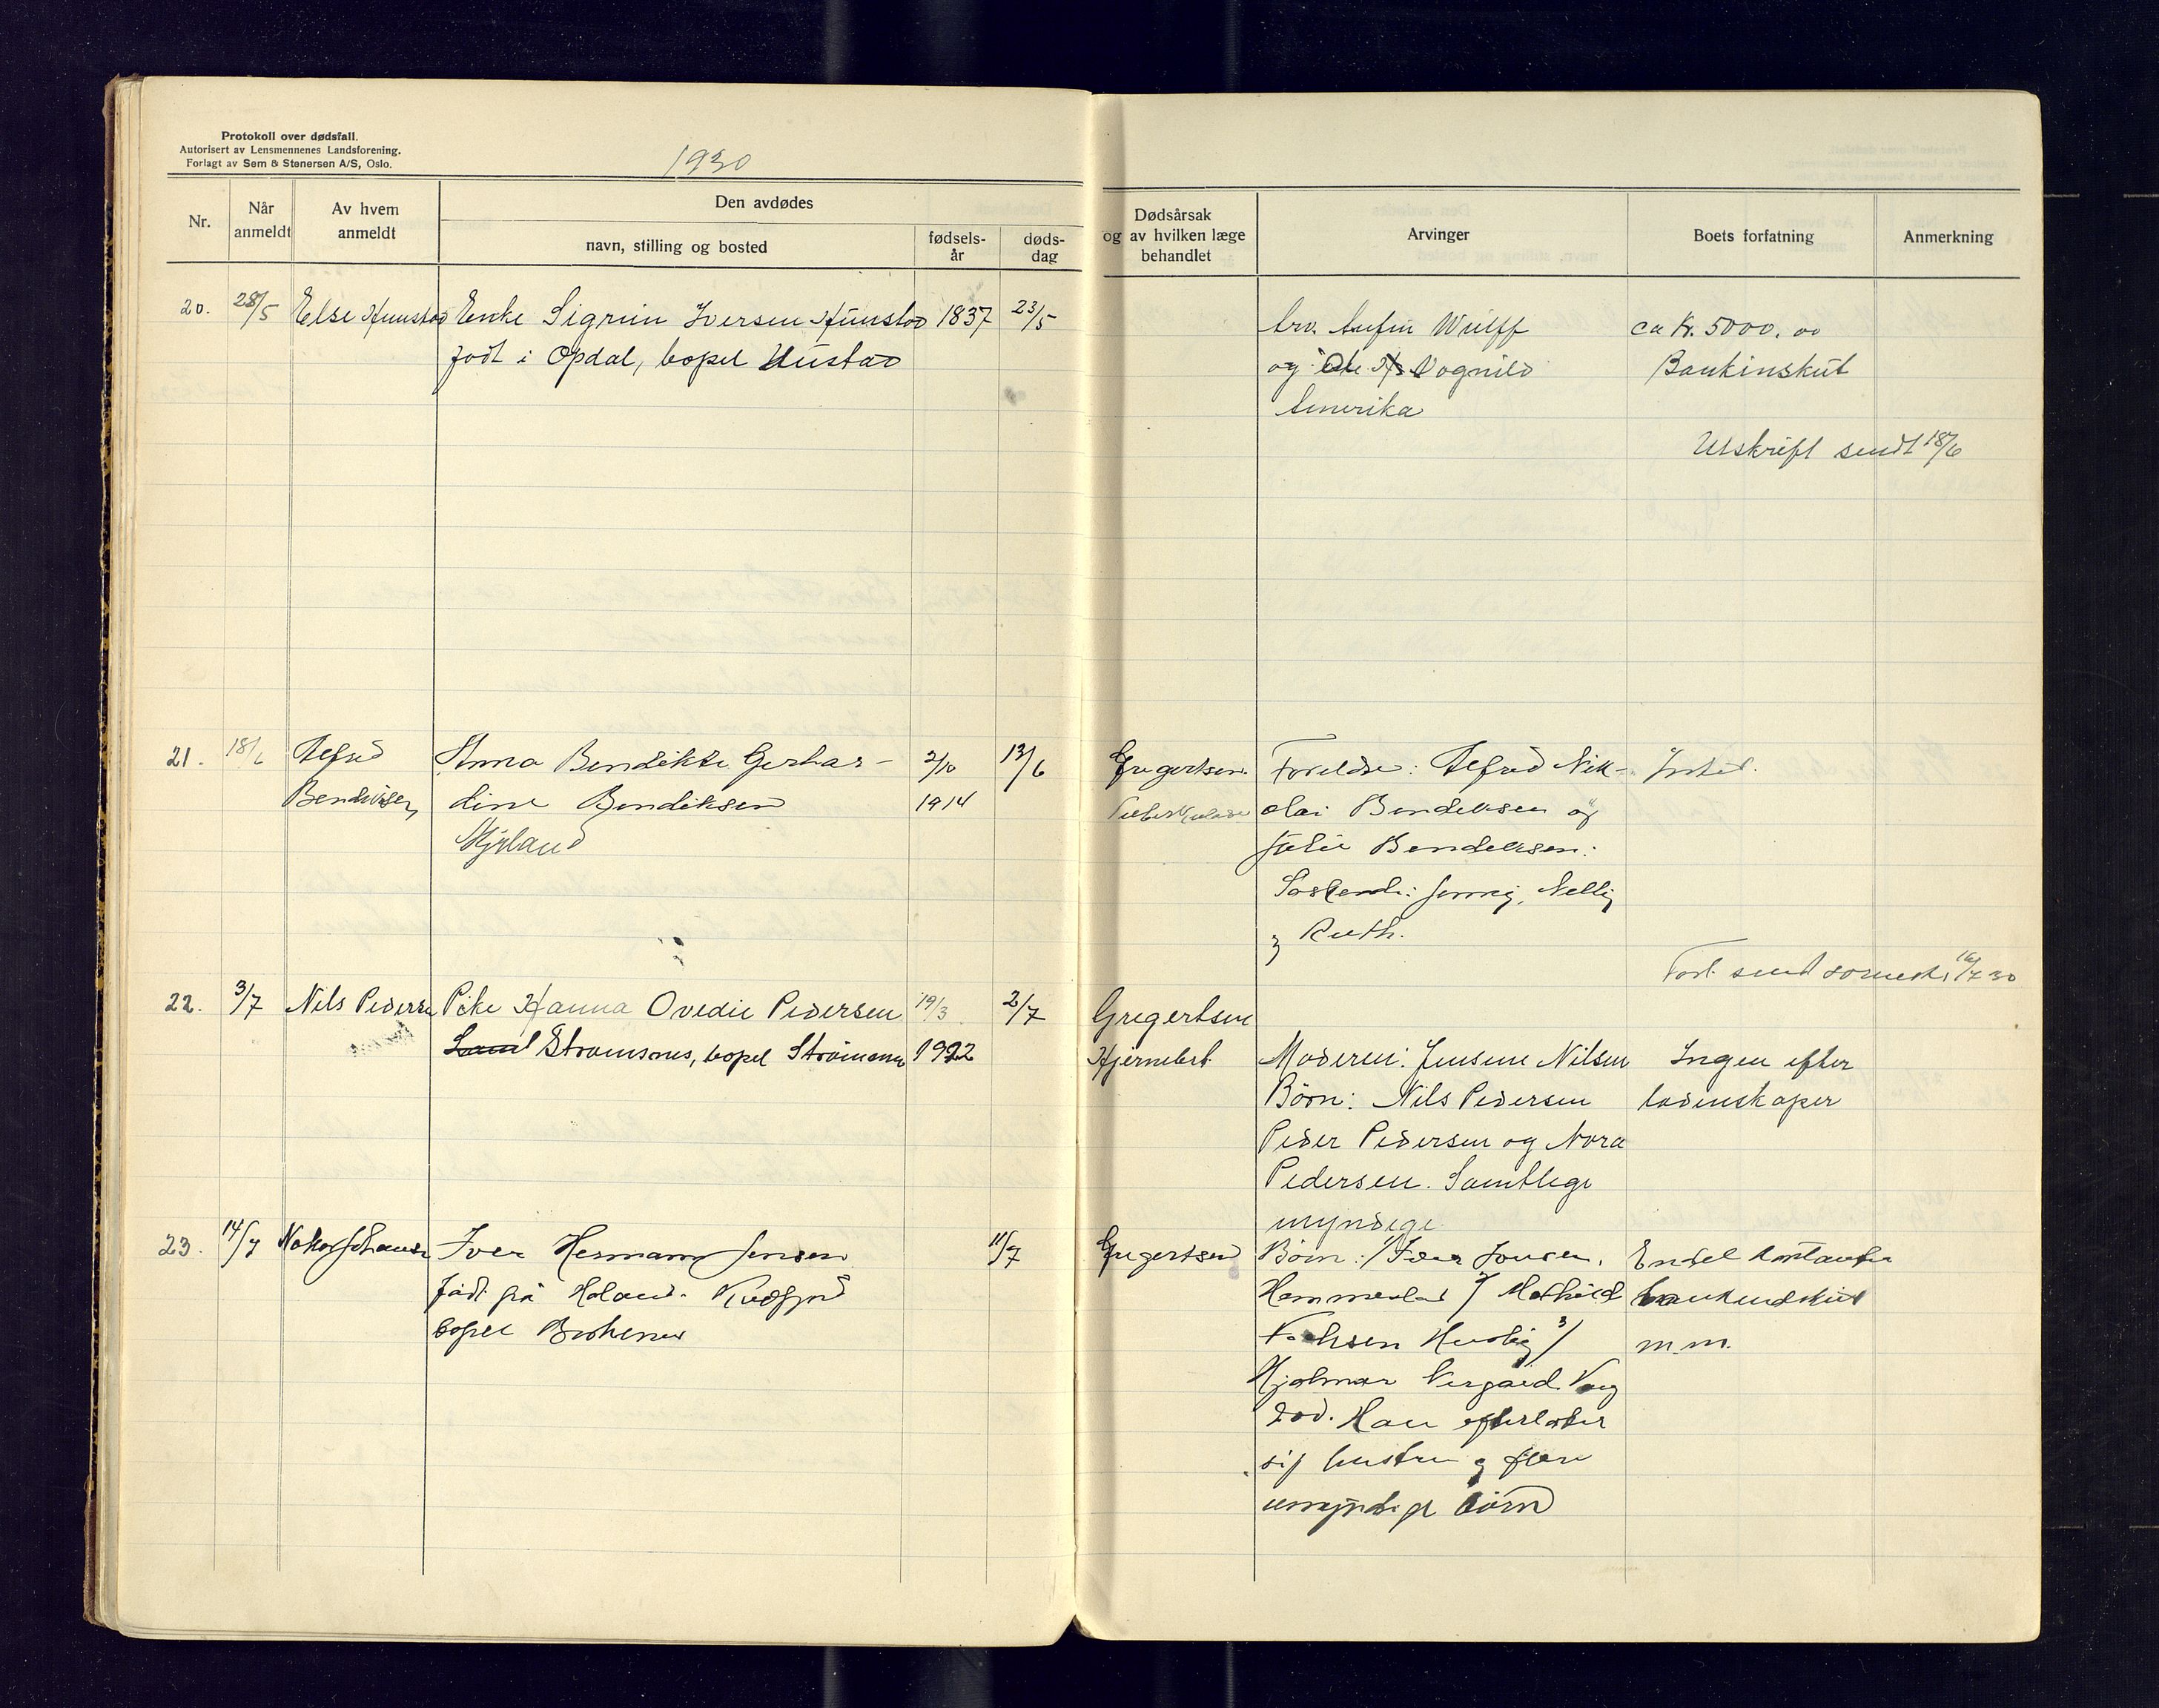 Protokoll over dødsfall.
Autorisert av Lensmennenes Landsforening.
Forlagt av Sem & Stenersen A/S, Oslo.
1930
Nr.
Når anmeldt
Av hvem anmeldt
Den avdødes
navn, stilling og bosted
fødsels-år
døds-dag
Dødsårsak og av hvilken læge behandlet
Arvinger
Boets forfatning
Anmerkning
20. 28/5 Else Hunstad Enke Sigrun Iversen Hunstad 1837 23/5
født i Opdal, bopel Hustad
Wulff ca Kr. 5000.00
og Ole Vognild Bankinskut
Amerika
Utskrift sendt 18/6
21. 18/6 Alfred Anna Bendikte Gerhar- 2/10 13/6 Gregertsen Foreldre: Alfred Nik- Intet.
Bendiksen dine Bendiksen 1914 Tuberkulose olai Bendiksen og
Julie Bendiksen:
Søskende: Jenny, Nelly
og Ruth.
16/7 30
22. 3/7 Nils Pedersen Pike Hanna Ovedie Pedersen 19/3 2/7 Gregertsen
Strømsnes, bopel Strømsnes 1922 Hjernebet. Moderen: Jensine Nilsen Ingen efter
Børn: Nils Pedersen ladenskaper
Peder Pedersen og Nora
Pedersen. Samtlige
myndige
23. 14/7 Iver Hermann Jensen 11/7 Gregertsen Børn: 1/ Iver Jensen, Endel kontanter
født på Holand. Kvedfjord 2/ Mathild bankindskut
bopel 3/ m.m.
Hjalmar
død. Han efterlater
sig hustru og flere
umyndige børn